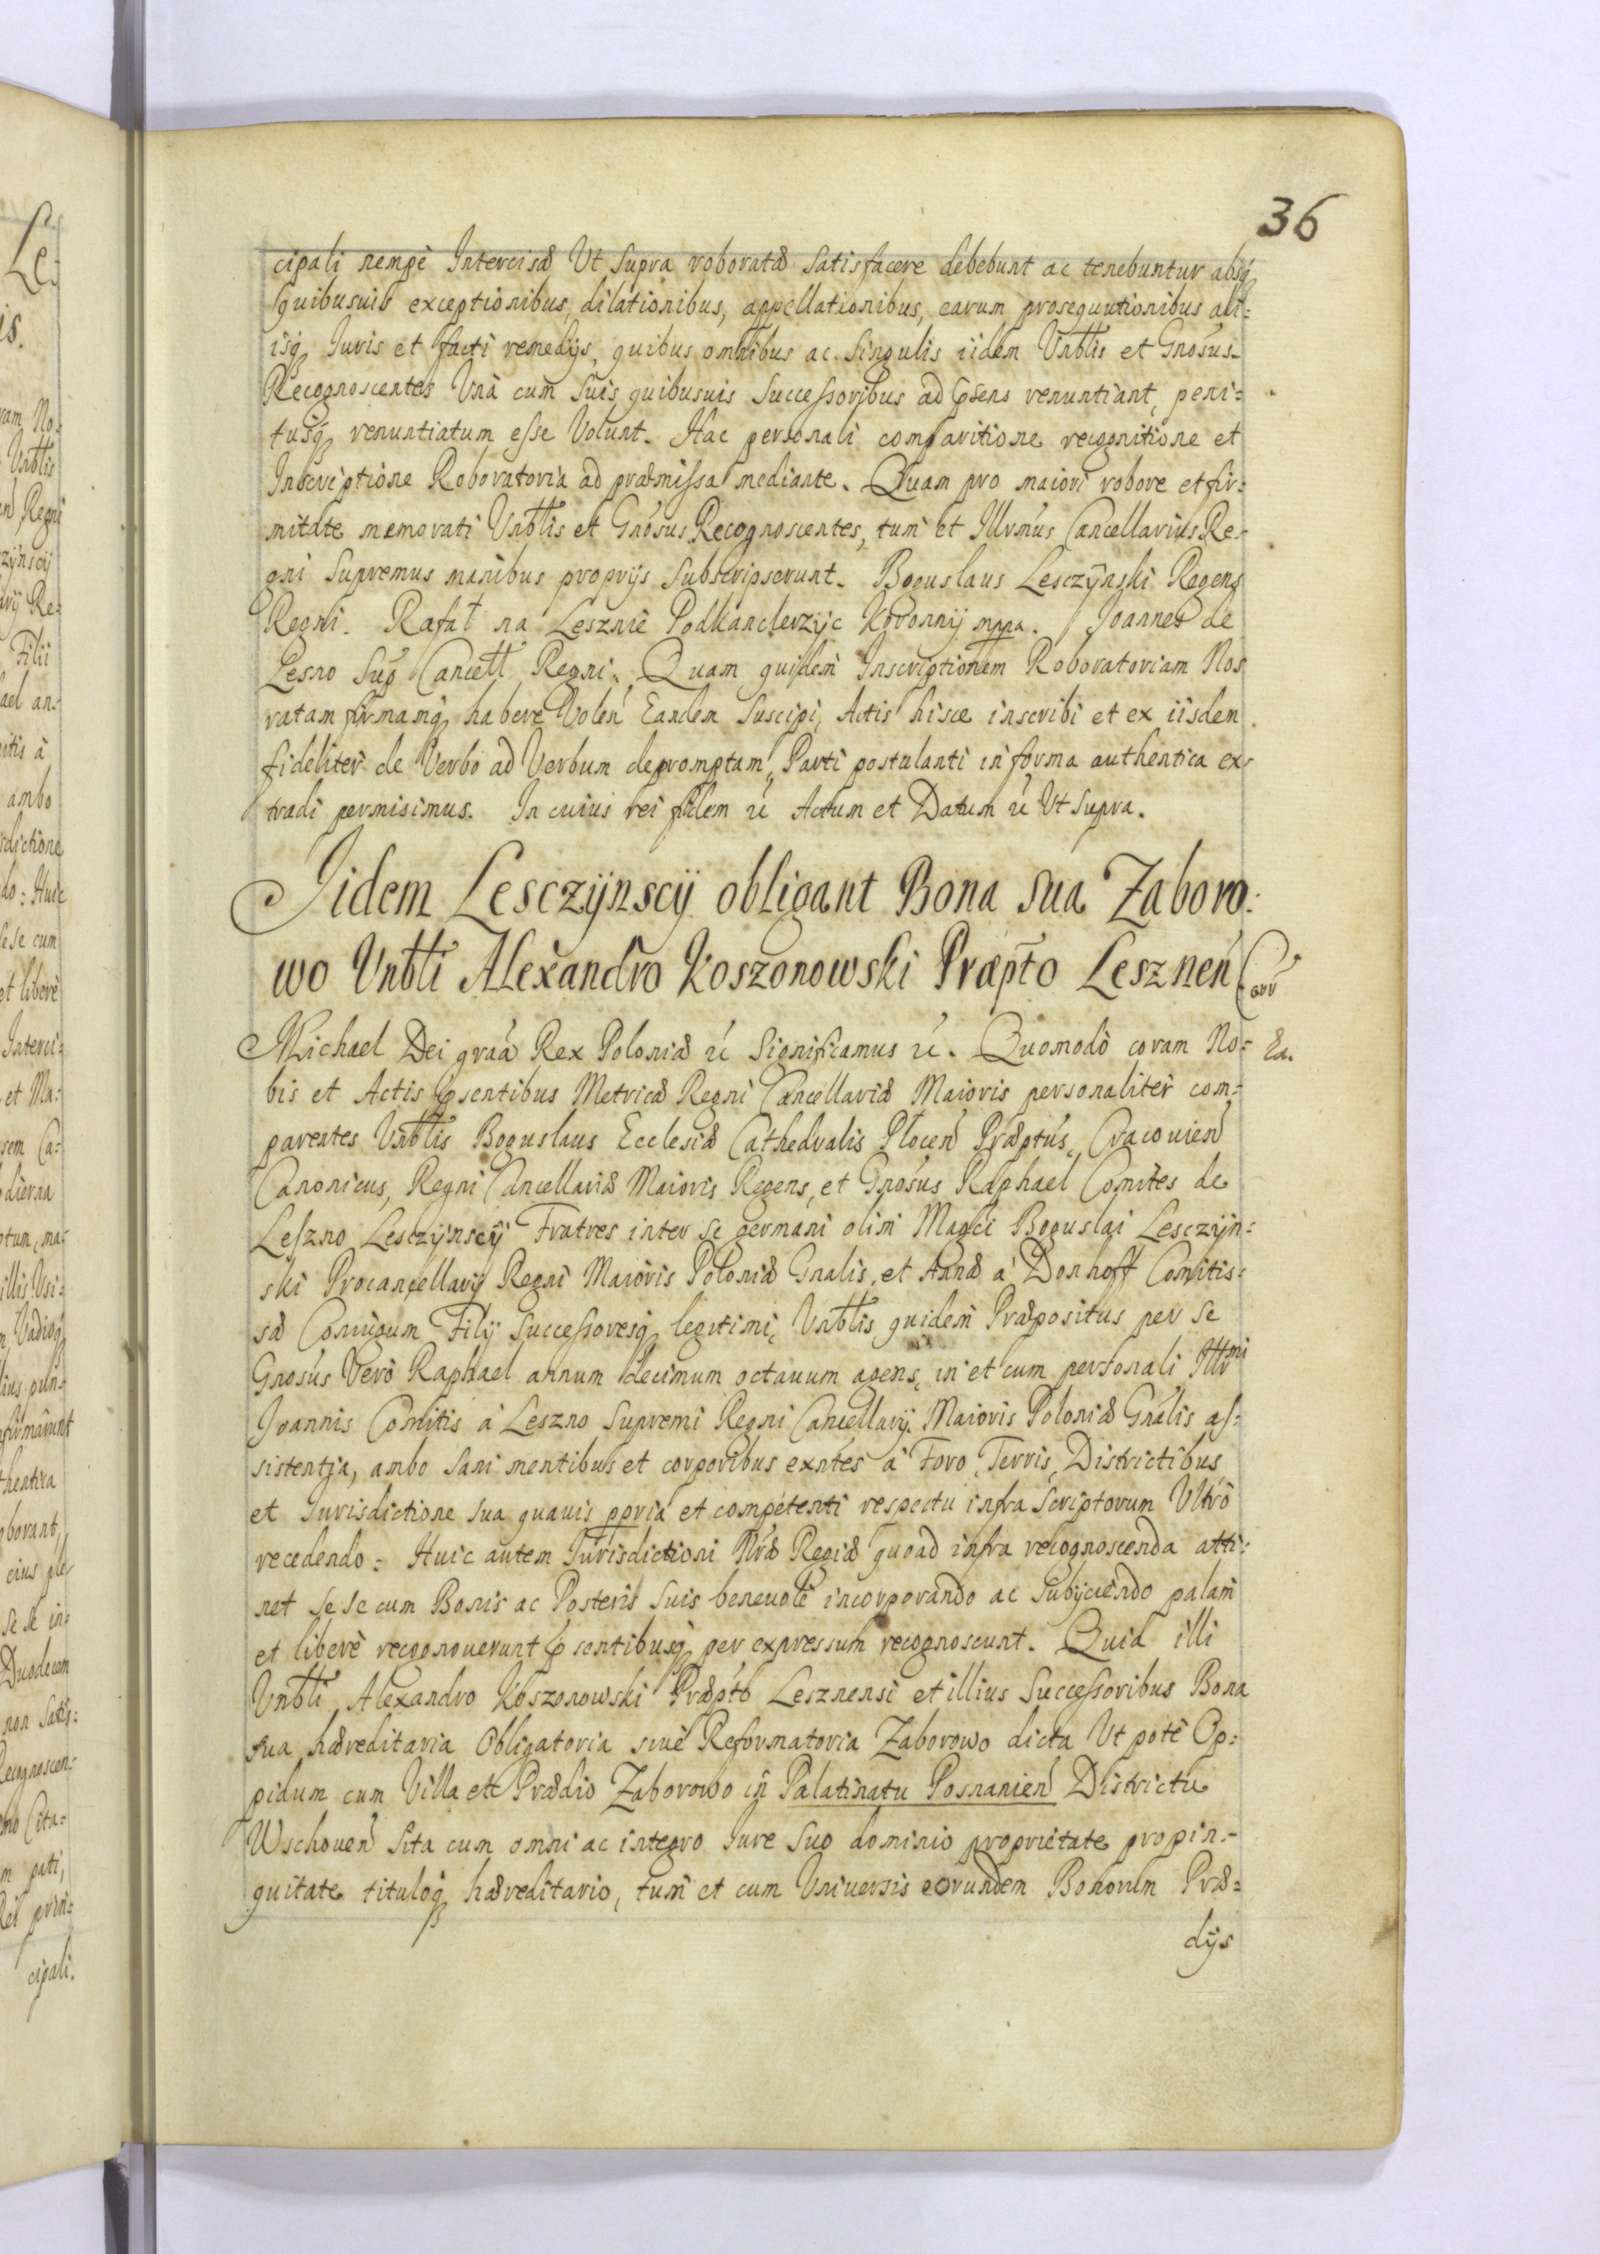 36
cipali nempè Intercisæ Ut supra roboratæ satisfacere debebunt ac tenebuntur absq
quibusuis exceptionibus, dilationibus, appellationibus, earum prosequutionibus ali=
isq Iuris et facti remedijs, quibus omnibus ac singulis iidem Vnbtlis et Gnosus
Recognoscentes Vnà cum suis quibusuis Successoribus ad psens renuntiant, peni=
tusq renuntiatum esse Volunt. Hac personali comparitione recognitione et
Inscriptione Roboratoria ad præmissa mediante. Quam pro maiori robore et fir=
mitate memorati Vnbtlis et Gnosus Recognoscentes, tum et Illrmus Cancellarius Re=
gni Supremus manibus proprijs subscripserunt. Boguslaus Lesczÿnski Regens
Regni. Rafał na Lesznie Podkanclerzyc Koronnij mppa. Joannes de
Lesno Sup Cancell Regni. Quam quidem Inscriptionem Roboratoriam Nos
ratam firmamq habere Volen Eandem suscipi, Actis hisce inscribi et ex iisdem
fideliter de Verbo ad Verbum depromptam, Parti postulanti in forma authentica ex=
tradi permisimus. In cuius rei fidem &c Actum et Datum &c Ut supra.
Iidem Lesczÿnscÿ obligant Bona sua Zaboro=
wo Vnbtli Alexandro Koszonowski Præpto Lesznen
Corr
Michael Dei graa Rex Poloniæ &c Significamus &c. Quomodò coram No=
Ea.
bis et Actis psentibus Metricæ Regni Cancellariæ Maioris personaliter com=
parentes Vnbtlis Boguslaus Ecclesiæ Cathedralis Płocen Præptus, Cracouien
Canonicus, Regni Cancellariæ Maioris Regens, et Gnosus Raphael Comites de
Leszno Lesczÿnscÿ Fratres inter se germani olim Magci Boguslai Lesczÿn=
ski Procancellarij Regni Maioris Poloniæ Gnalis, et Annæ à Donhoff Comitis=
sæ Coniugum Filij Successoresq legitimi, Vnbtlis quidem Præpositus per se
Gnosus Verò Raphael annum decimum octauum agens, in et cum personali Illrmi
Joannis Comitis à Leszno Supremi Regni Cancellarij Maioris Poloniæ Gnalis as=
sistentia, ambo sani mentibus et corporibus exntes à Foro, Terris, Districtibus
et Iurisdictione sua quauis ppria et competenti respectu infra Scriptorum Vltrò
recedendo: Huic autem Iurisdictioni Nræ Regiæ quoad infra recognoscenda atti=
net se se cum Bonis ac Posteris suis beneuolè incorporando ac subijciendo palam
et liberè recognouerunt psentibusq per expressum recognoscunt. Quia illi
Vnbtli Alexandro Koszonowski Præpto Lesznensi et illius Successoribus Bona
sua hæreditaria Obligatoria siuè Reformatoria Zaborowo dicta Ut potè Op=
pidum cum Villa et Prædio Zaborowo in Palatinatu Posnanien Districtu
Wschouen sita cum omni ac integro Iure suo dominio proprietate propin=
quitate tituloq hæreditario, tum et cum Vniuersis eorundem Bonorum Præ=
dijs